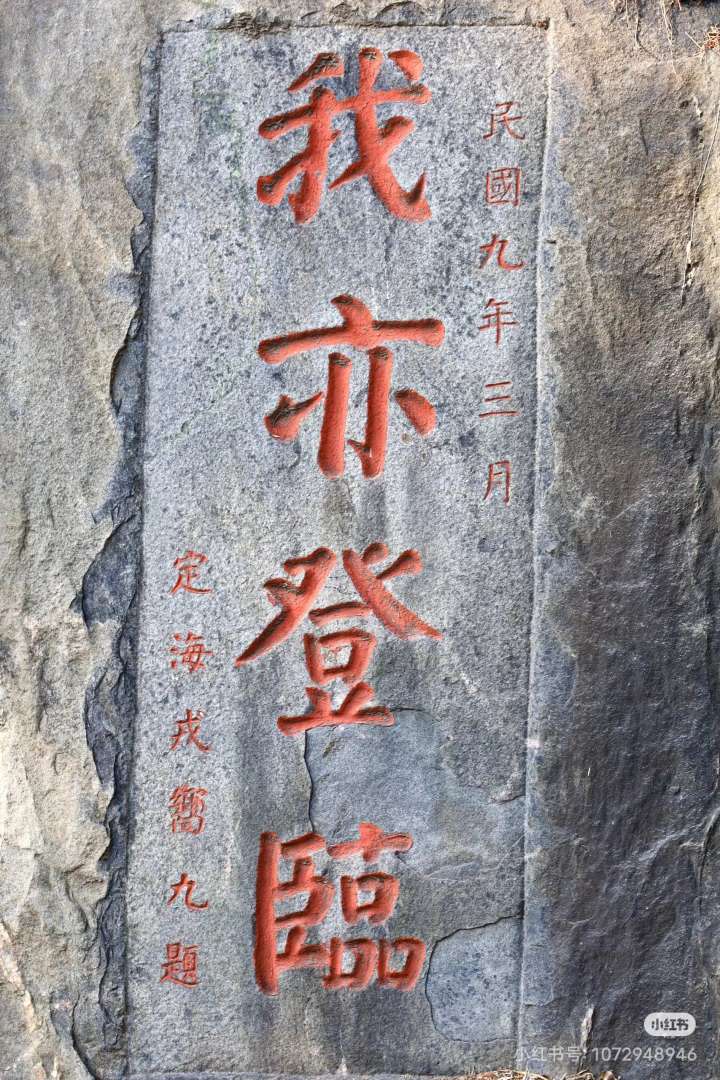 民國九年三月
我亦登臨
定海戎嚮九題
小红书
小红书号:1072948946